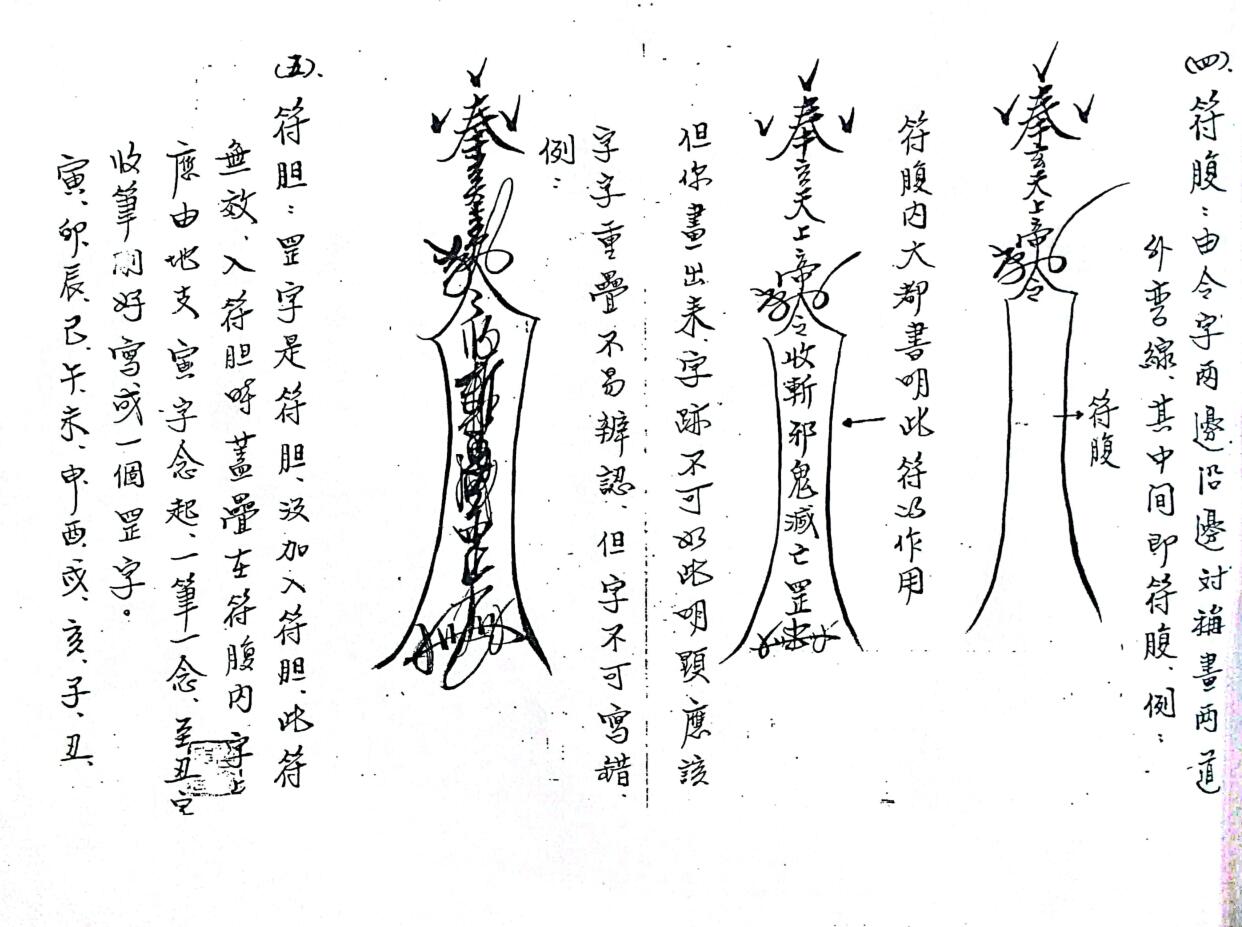 (四).符腹：由令字两邊沿邊对稱畫两道
外弯線、其中间即符腹、例：
奉玄天上帝敕令
符腹
符腹内大都書明此符的作用
奉玄天上帝敕令收斬邪鬼滅亡罡
但你畫出来、字跡不可如此明顕應該
字字重疊不易辨認、但字不可寫錯、
例：
奉
(五).符胆：罡字是符胆、没加入符胆、此符
無效、入符胆時蓋疊在符腹内字上
應由地支寅字念起、一筆一念、至丑字
收筆剛好寫成一個罡字。
寅、卯、辰、巳、午、未、申、酉、戌、亥、子、丑、